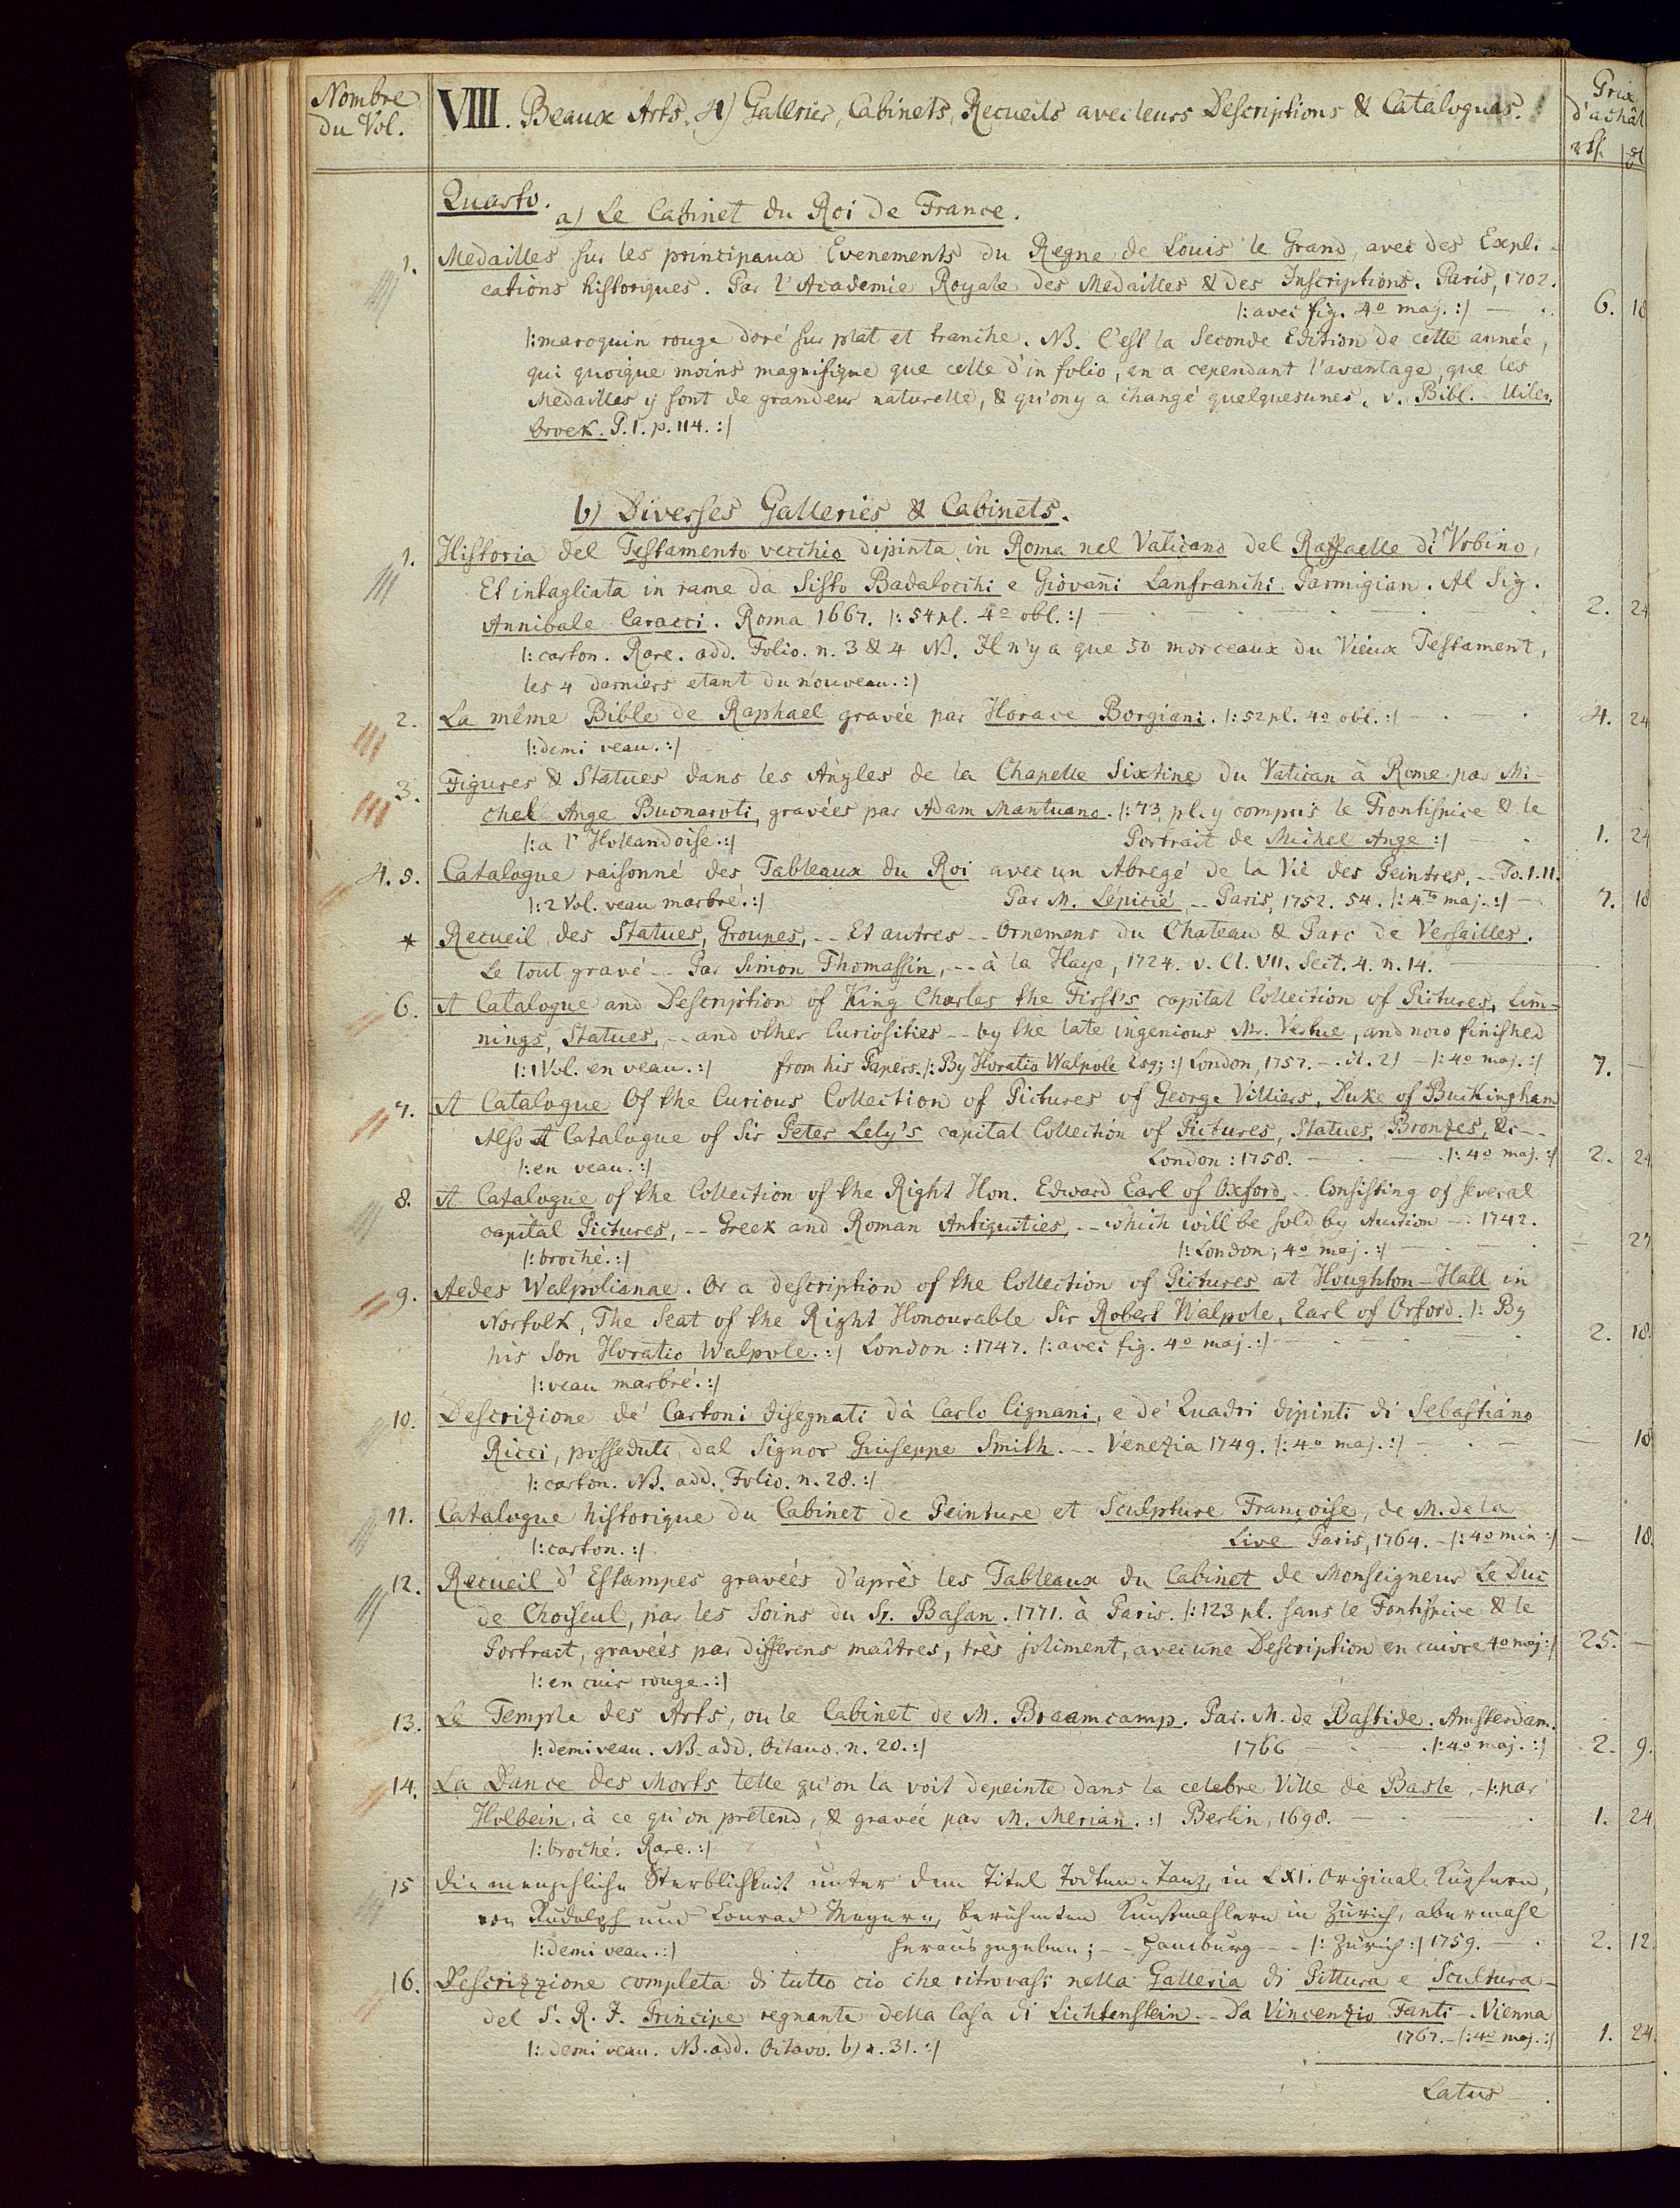 Nombre
du Vol.
VIII. Beaux Arts. 4) Galleries, Cabinets, Recueils avec leurs Descriptions & Catalogues.
Prix
d'achât
Quarto.
a) Le Cabinet du Roi de France.
1. Medailles sur les principaux Evenements du Regne de Louis le Grand, avec des Expli-
cations historiques. Par l'Academie Royale des Medailles & des Inscriptions. Paris, 1702.
|: avec fig. 4o maj. :| — . 6. 18
|: maroquin rouge doré sur plat et tranche. NB. C'est la Seconde Edition de cette année,
qui quoique moins magnifique que celle d'in folio, en a cependant l'avantage, que les
Medailles y sont de grandeur naturelle, & qu'on y a changé quelquesunes. v. Bibl. Uilen
broek. P. I. p. 114. :|
b) Diverses Galleries & Cabinets.
1. Historia del Testamento vecchio dipinta in Roma nel Vaticano del Raffaelle di Vrbino,
Et intagliata in rame da Sisto Badalocchi e Giovañi Lanfranchi Parmigian. Al Sig.
Annibale Caracci. Roma 1667. |: 54 pl. 4o obl. :| 2. 24
|: carton. Rare. add. Folio. n. 3 & 4 NB. Il n'y a que 50 morceaux du Vieux Testament,
les 4 darniers etant du nouveau. :|
2. La même Bible de Raphael gravée par Horace Borgiani. |: 52 pl. 4o obl. :| 4. 24
|: demi veau. :|
3. Figures & Statues dans les Angles de la Chapelle Sixtine du Vatican à Rome par Mi-
chel Ange Buonaroti, gravées par Adam Mantuano. |: 73 pl. y compris le Frontispice & le
|: a l'Hollandoise. :| Portrait de Michel Ange :| 1. 24
4. 5. Catalogue raisonné des Tableaux du Roi avec un Abregé de la Vie des Peintres. -- To. I. II.
|: 2 Vol. veau marbré. :| Par M. Lépicié. -- Paris, 1752. 54. |: 4to maj. :| — 7. 18
* Recueil des Statues, Groupes, -- Et autres -- Ornemens du Chateau & Parc de Versailles.
Le tout gravé -- Par Simon Thomassin, -- à la Haye, 1724. v. Cl. VII. Sect. 4. n. 14.
6. A Catalogue and Description of King Charles the First's capital Collection of Pictures, Lim-
nings, Statues, -- and other Curiosities -- by the late ingenious Mr. Vertue, and now finished
|: 1 Vol. en veau. :| from his Papers. |: By Horatio Walpole Esq; :| London, 1757. — |: 4o maj. :| 7. —
7. A Catalogue Of the Curious Collection of Pictures of George Villiers, Duke of Buckingham
Also A Catalogue of Sir Peter Lely's capital Collection of Pictures, Statues, Bronzes, &c --
|: en veau. :| London : 1758. — . — . |: 4o maj. :| 2. 24
8. A Catalogue of the Collection of the Right Hon. Edward Earl of Oxford, -- Consisting of several
capital Pictures, -- Greek and Roman Antiquities, -- which will be sold by Auction -- 1742.
|: broché. :| |: London, 4o maj. :| —
9. Aedes Walpolianae. Or a description of the Collection of Pictures at Houghton-Hall in
Norfolk, The Seat of the Right Honourable Sir Robert Walpole, Earl of Orford. |: By
his Son Horatio Walpole. :| London : 1747. |: avec fig. 4o maj. :| 2. 18.
|: veau marbré. :|
10. Descrizione de' Cartoni disegnati dà Carlo Cignani, e de' Quadri dipinti di Sebastiano
Ricci, posseduti dal Signor Giuseppe Smith. -- Venezia 1749. |: 4o maj. :| — . — — 18
|: carton. NB. add. Folio. n. 28. :|
11. Catalogue historique du Cabinet de Peinture et Sculpture Françoise, de M. de la
|: carton. :| Live Paris, 1764. — |: 4o min :| — 18.
12. Recueil d'Estampes gravées d'après les Tableaux du Cabinet de Monseigneur Le Duc
de Choiseul, par les Soins du Sr. Basan. 1771. à Paris. |: 123 pl. sans le Fontispice & le
Portrait, gravées par differens maîtres, très joliment, avec une Description en cuivre 4o maj :| 25. —
|: en cuir rouge. :|
13. Le Temple des Arts, ou le Cabinet de M. Braamcamp. Par. M. de Bastide. Amsterdam.
|: demi veau. NB. add. Octavo. n. 20. :| 1766 — . |: 4o maj. :| 2. 9.
14. La Dance des Morts telle qu'on la voit depeinte dans la celebre Ville de Basle, -- |: par
Holbein, à ce qu'on prétend, & gravée par M. Merian. :| Berlin, 1698. 1. 24
|: broché. Rare. :|
15 Die menschliche Sterblichkeit unter dem Titel Todten-Tanz, in LXI. Original-Kupfern,
von Rudolph und Conrad Meyern, berühmten Kunstmahlern in Zürich, abermahl
|: demi veau. :| herausgegeben; -- Hamburg -- |: Zürich :| 1759. — . 2. 12.
16. Descrizzione completa di tutto ciò che ritrovasi nella Galleria di Pittura e Scultura
del S. R. I. Principe regnante della Casa di Lichtenstein. -- Da Vincenzio Fanti -- Vienna
1767. — |: 4o maj. :| 1. 24.
|: demi veau. NB. add. Octavo. b) n. 31. :|
Latus